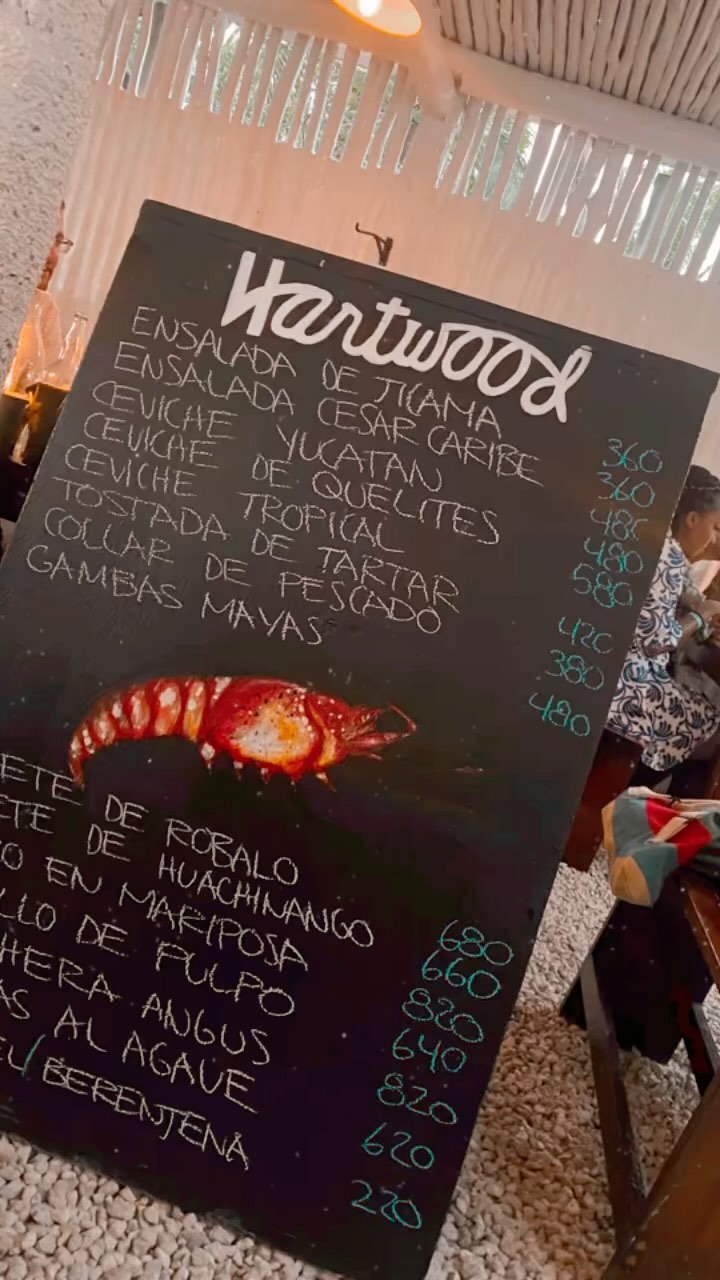 Hartwood
ENSALADA DE JICAMA 360
ENSALADA CESAR CARIBE 360
CEVICHE YUCATAN 480
CEVICHE DE QUELITES 480
CEVICHE TROPICAL 580
TOSTADA DE TARTAR 420
COLLAR DE PESCADO 380
GAMBAS MAYAS 480
ETE DE ROBALO 680
ETE DE HUACHINANGO 660
O EN MARIPOSA 820
LLO DE PULPO 640
HERA ANGUS 820
AS AL AGAVE 620
/BERENJENA 220